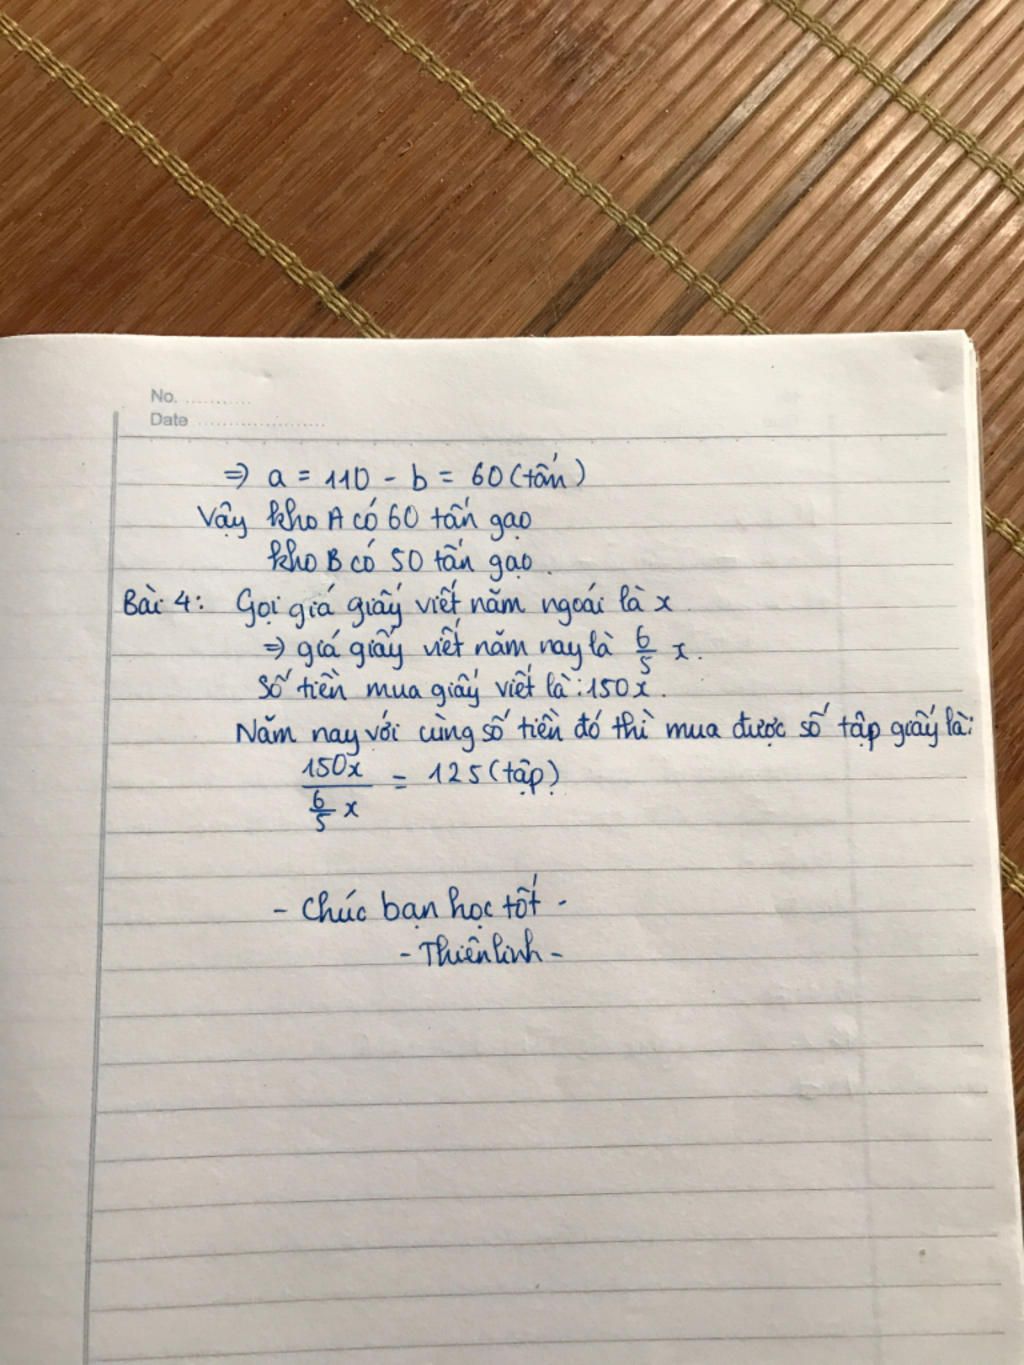 No. ..........
Date ....................
=> a = 110 - b = 60 (tấn)
Vậy kho A có 60 tấn gạo
kho B có 50 tấn gạo.
Bài 4: Gọi giá giấy viết năm ngoái là x
=> giá giấy viết năm nay là 6/5 x.
Số tiền mua giấy viết là: 150x.
Năm nay với cùng số tiền đó thì mua được số tập giấy là:
150x / (6/5 x) = 125 (tập)
- Chúc bạn học tốt -
- Thiên linh -